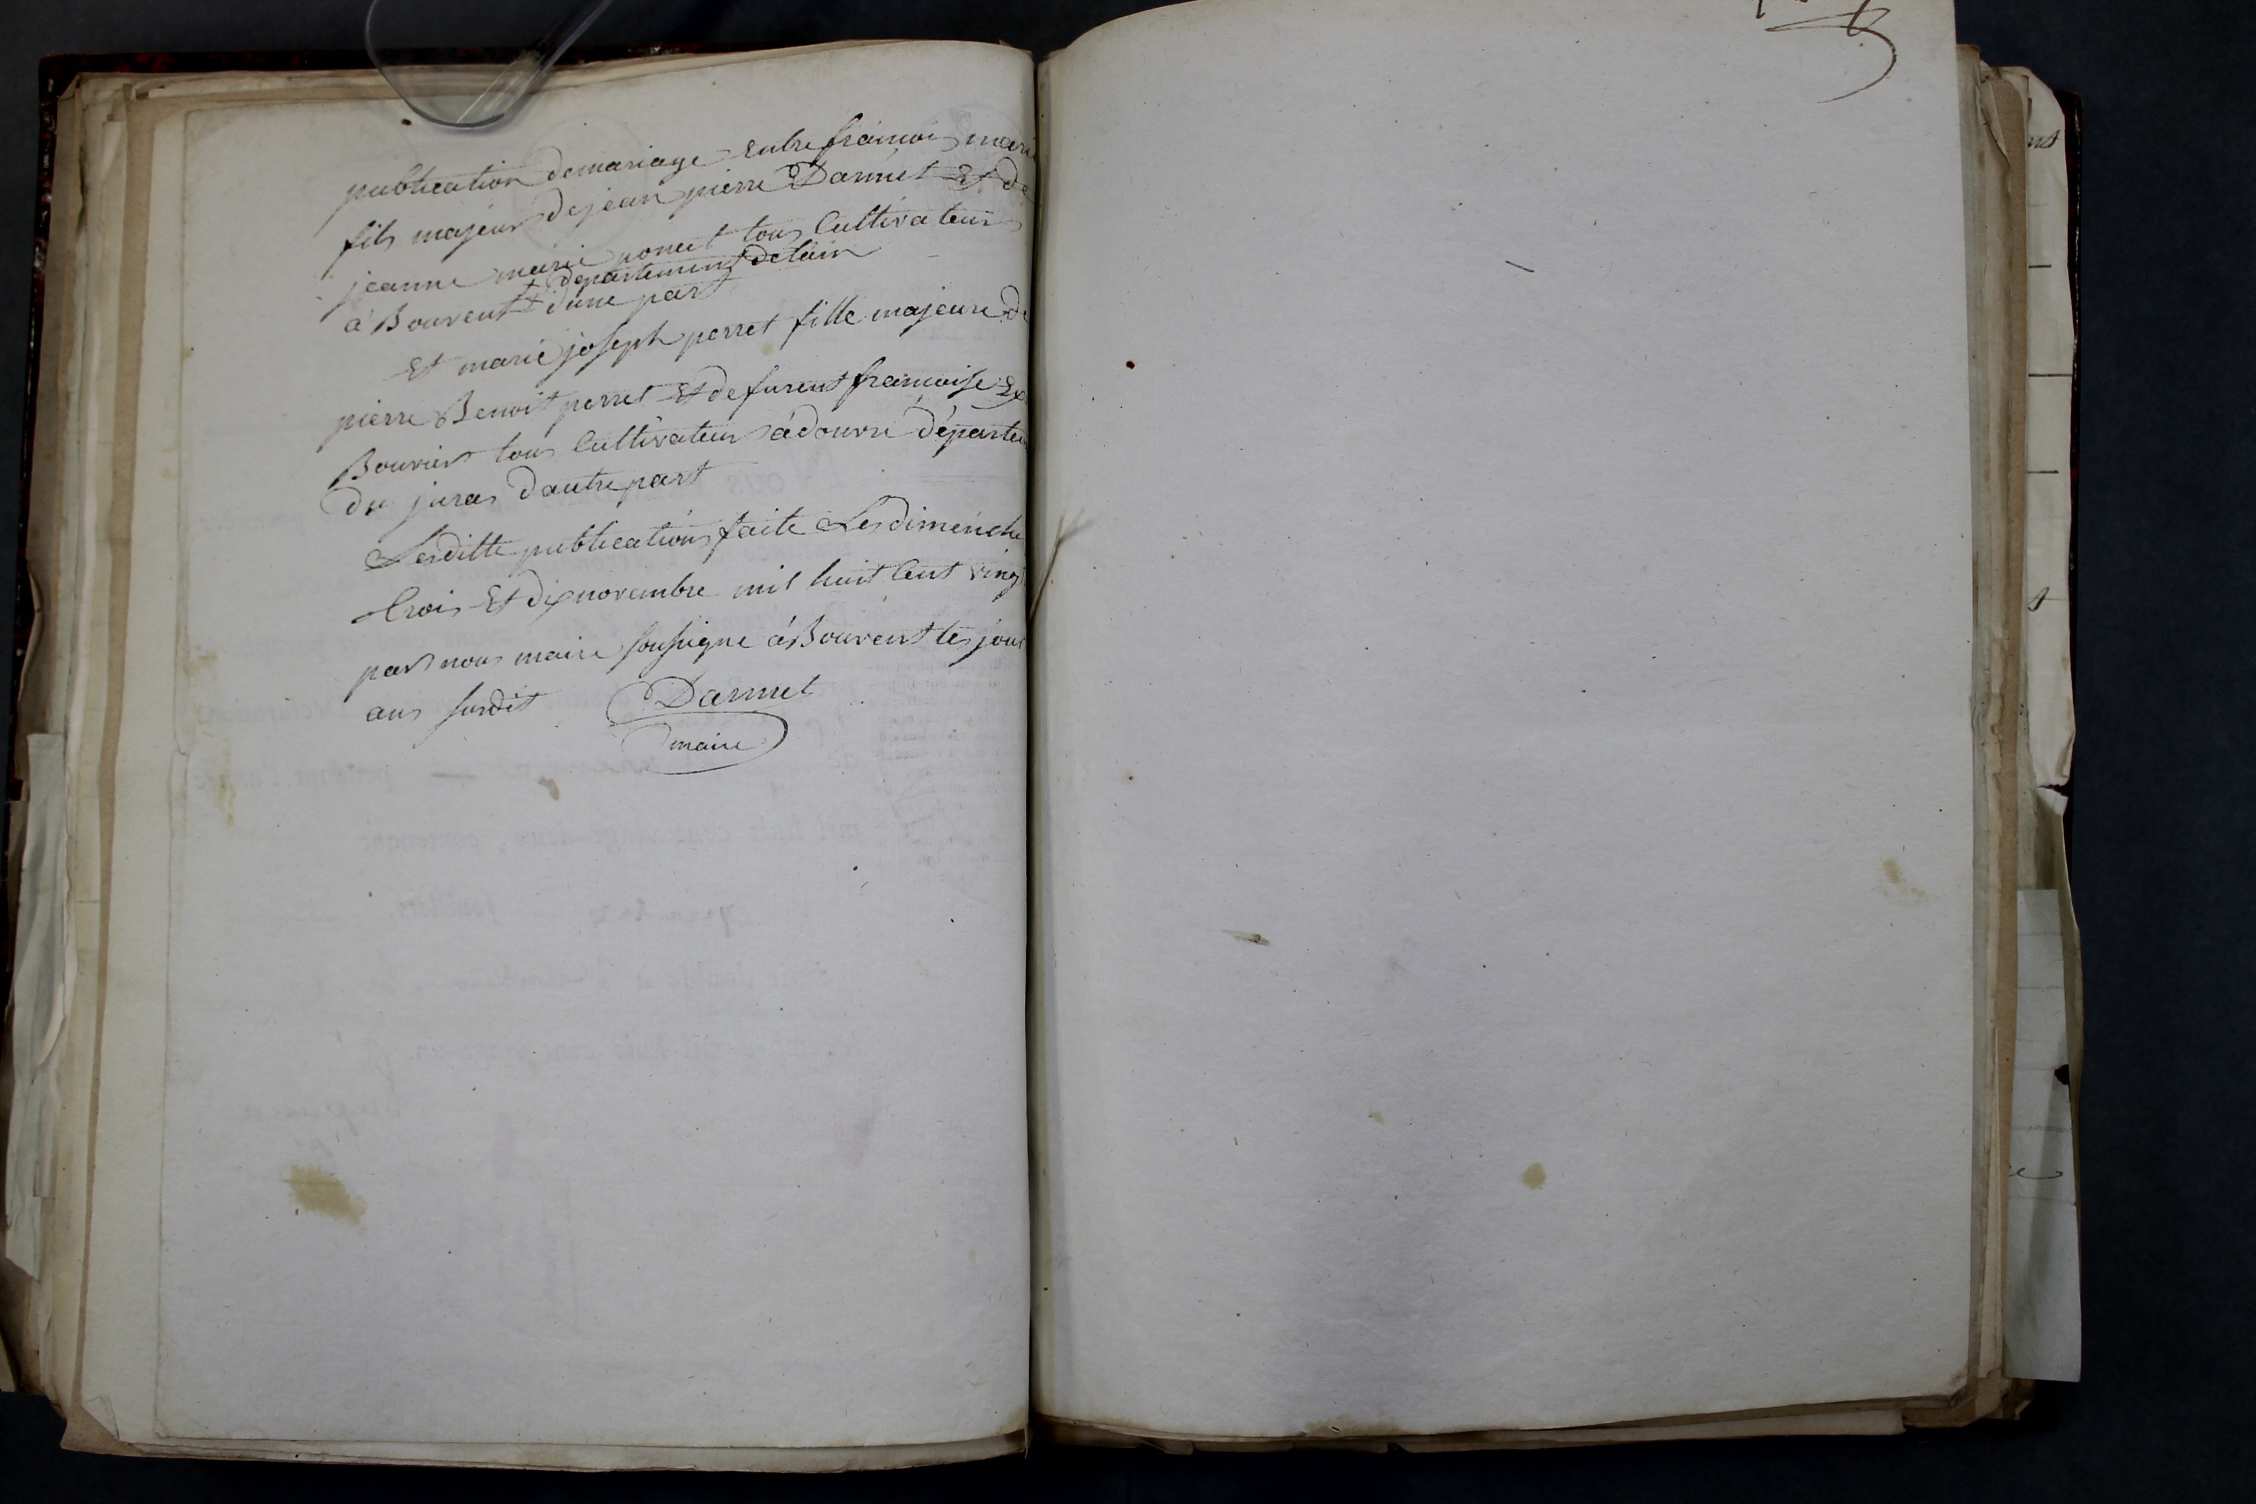 publication demariage entre francois mari
fils majeur dejean pierre Darmet Et de
jeanne marie ponul tous Cultivateur
+ departement delain
à Bouvent + dune part
Et marie joseph perret fille majeure de
pierre Benoit perret Et defurent francoise
Bouvier tous Cultivateur àdouvre départem
du juras dautre part
Lesditte publications faite Les dimenche
trois Et dix novembre mil huit Cent vingt
par nous maire soussigne à Bouvent les jour
ans susdit Darmet
maire